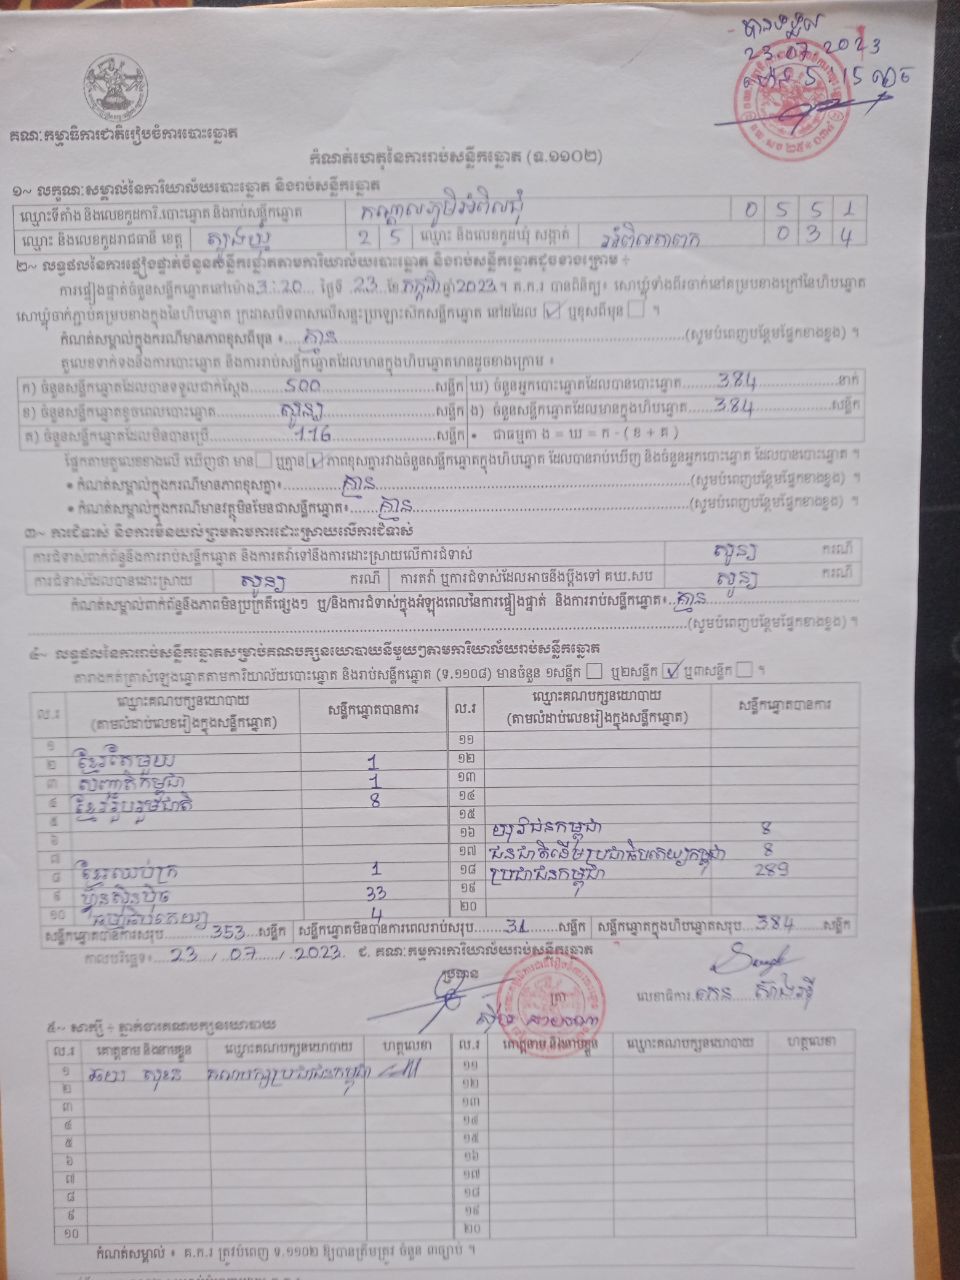 បានបង្ហើយ
23.07.2023
ម៉ោង 5 15 ល្ងាច
គណៈកម្មាធិការជាតិរៀបចំការបោះឆ្នោត
កំណត់ហេតុនៃការរាប់សន្លឹកឆ្នោត (ទ.១១០២)
១~ លក្ខណៈសម្គាល់នៃការិយាល័យបោះឆ្នោត និងរាប់សន្លឹកឆ្នោត
ឈ្មោះទីតាំង និងលេខកូដការិ.បោះឆ្នោត និងរាប់សន្លឹកឆ្នោត កណ្តាលភូមិអំពិលជុំ 0 5 5 1
ឈ្មោះ និងលេខកូដរាជធានី ខេត្ត ត្បូងឃ្មុំ 2 5 ឈ្មោះ និងលេខកូដឃុំ សង្កាត់ អំពិលតាពក 0 3 4
២~ លទ្ធផលនៃការផ្ទៀងផ្ទាត់ចំនួនសន្លឹកឆ្នោតតាមការិយាល័យបោះឆ្នោត និងរាប់សន្លឹកឆ្នោតដូចខាងក្រោម ៖
ការផ្ទៀងផ្ទាត់ចំនួនសន្លឹកឆ្នោតនៅម៉ោង 3:20 ថ្ងៃទី 23 ខែ កក្កដា ឆ្នាំ 2023 ។ គ.ក.រ បានពិនិត្យ៖ សោឃ្លុំទាំងពីរចាក់នៅគម្របខាងក្រៅនៃហិបឆ្នោត
សោឃ្លុំចាក់ភ្ជាប់គម្របខាងក្នុងនៃហិបឆ្នោត ក្រដាសបិទពាសលើសន្ទះប្រឡោះសិកសន្លឹកឆ្នោត នៅដដែល ☑ ឬខុសពីមុន ☐ ។
កំណត់សម្គាល់ក្នុងករណីមានភាពខុសពីមុន ៖ គ្មាន (សូមបំពេញបន្ថែមផ្នែកខាងខ្នង) ។
តួលេខទាក់ទងនឹងការបោះឆ្នោត និងការរាប់សន្លឹកឆ្នោតដែលមានក្នុងហិបឆ្នោតមានដូចខាងក្រោម ៖
ក) ចំនួនសន្លឹកឆ្នោតដែលបានទទួលជាក់ស្តែង 500 សន្លឹក ឃ) ចំនួនអ្នកបោះឆ្នោតដែលបានបោះឆ្នោត 384 នាក់
ខ) ចំនួនសន្លឹកឆ្នោតខូចពេលបោះឆ្នោត សូន្យ សន្លឹក ង) ចំនួនសន្លឹកឆ្នោតដែលមានក្នុងហិបឆ្នោត 384 សន្លឹក
គ) ចំនួនសន្លឹកឆ្នោតដែលមិនបានប្រើ 116 សន្លឹក • ជាធម្មតា ង = ឃ = ក - ( ខ + គ )
ផ្អែកតាមតួលេខខាងលើ ឃើញថា មាន ☐ ឬគ្មាន ☑ ភាពខុសគ្នារវាងចំនួនសន្លឹកឆ្នោតក្នុងហិបឆ្នោត ដែលបានរាប់ឃើញ និងចំនួនអ្នកបោះឆ្នោត ដែលបានបោះឆ្នោត ។
• កំណត់សម្គាល់ក្នុងករណីមានភាពខុសគ្នា៖ គ្មាន (សូមបំពេញបន្ថែមផ្នែកខាងខ្នង) ។
• កំណត់សម្គាល់ក្នុងករណីមានវត្ថុមិនមែនជាសន្លឹកឆ្នោត៖ គ្មាន (សូមបំពេញបន្ថែមផ្នែកខាងខ្នង) ។
៣~ ការជំទាស់ និងការមិនយល់ព្រមតាមការដោះស្រាយលើការជំទាស់
ការជំទាស់ពាក់ព័ន្ធនឹងការរាប់សន្លឹកឆ្នោត និងការតវ៉ាទៅនឹងការដោះស្រាយលើការជំទាស់ សូន្យ ករណី
ការជំទាស់ដែលបានដោះស្រាយ សូន្យ ករណី ការតវ៉ា ឬការជំទាស់ដែលអាចនឹងប្តឹងទៅ គឃ.សប សូន្យ ករណី
កំណត់សម្គាល់ពាក់ព័ន្ធនឹងភាពមិនប្រក្រតីផ្សេងៗ ឬ/និងការជំទាស់ក្នុងអំឡុងពេលនៃការផ្ទៀងផ្ទាត់ និងការរាប់សន្លឹកឆ្នោត៖ គ្មាន
(សូមបំពេញបន្ថែមផ្នែកខាងខ្នង) ។
៤~ លទ្ធផលនៃការរាប់សន្លឹកឆ្នោតសម្រាប់គណបក្សនយោបាយនីមួយៗតាមការិយាល័យរាប់សន្លឹកឆ្នោត
តារាងកត់ត្រាសំឡេងឆ្នោតតាមការិយាល័យបោះឆ្នោត និងរាប់សន្លឹកឆ្នោត (ទ.១១០៨) មានចំនួន ១សន្លឹក ☐ ឬ២សន្លឹក ☑ ឬ៣សន្លឹក ☐ ។
ល.រ ឈ្មោះគណបក្សនយោបាយ (តាមលំដាប់លេខរៀងក្នុងសន្លឹកឆ្នោត) សន្លឹកឆ្នោតបានការ ល.រ ឈ្មោះគណបក្សនយោបាយ (តាមលំដាប់លេខរៀងក្នុងសន្លឹកឆ្នោត) សន្លឹកឆ្នោតបានការ
១ ១១
២ ខ្មែរតែមួយ 1 ១២
៣ សញ្ជាតិកម្ពុជា 1 ១៣
៤ ខ្មែររួបរួមជាតិ 8 ១៤
៥ ១៥
៦ ១៦ យុវជនកម្ពុជា 8
៧ ១៧ ជនជាតិដើមប្រជាធិបតេយ្យកម្ពុជា 8
៨ ខ្មែរឈប់ក្រ 1 ១៨ ប្រជាជនកម្ពុជា 289
៩ ហ៊្វុនស៊ិនប៉ិច 33 ១៩
១០ 4 ២០
សន្លឹកឆ្នោតបានការសរុប 353 សន្លឹក សន្លឹកឆ្នោតមិនបានការពេលរាប់សរុប 31 សន្លឹក សន្លឹកឆ្នោតក្នុងហិបឆ្នោតសរុប 384 សន្លឹក
កាលបរិច្ឆេទ៖ 23 / 07 / 2023 ជ. គណៈកម្មការការិយាល័យរាប់សន្លឹកឆ្នោត
ប្រធាន
លេខាធិការ
៥~ សាក្សី ៖ ភ្នាក់ងារគណបក្សនយោបាយ
ល.រ គោត្តនាម និងនាមខ្លួន ឈ្មោះគណបក្សនយោបាយ ហត្ថលេខា ល.រ គោត្តនាម និងនាមខ្លួន ឈ្មោះគណបក្សនយោបាយ ហត្ថលេខា
១ គណបក្សប្រជាជនកម្ពុជា ១១
២ ១២
៣ ១៣
៤ ១៤
៥ ១៥
៦ ១៦
៧ ១៧
៨ ១៨
៩ ១៩
១០ ២០
កំណត់សម្គាល់ ៖ គ.ក.រ ត្រូវបំពេញ ទ.១១០២ ឱ្យបានត្រឹមត្រូវ ចំនួន ៣ច្បាប់ ។